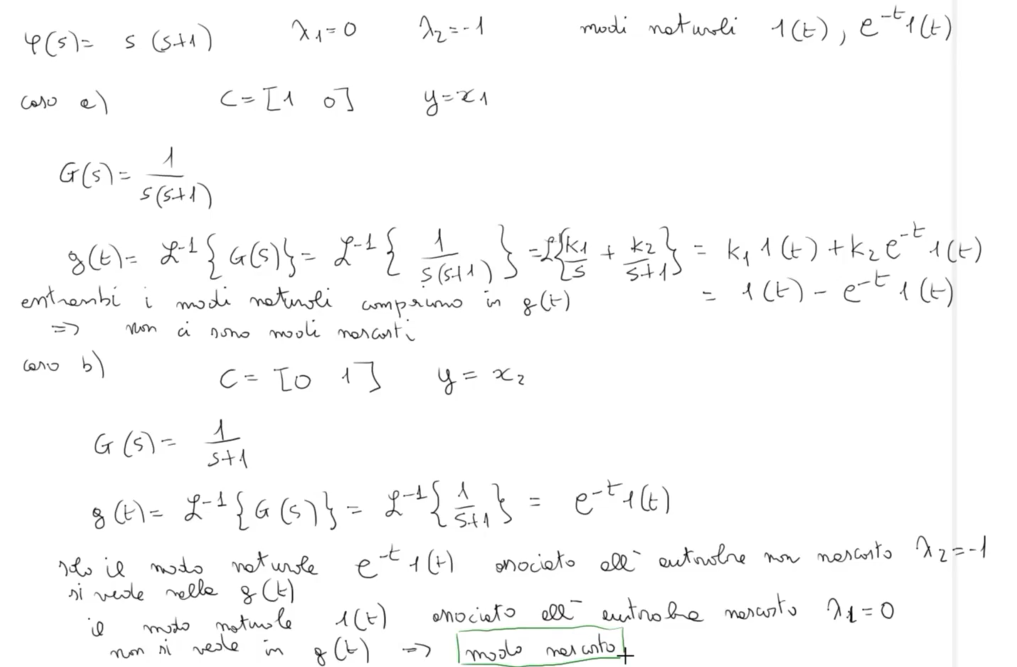 φ(s)= s (s+1) λ1=0 λ2=-1 modi naturali 1(t), e^-t 1(t)
caso a) C=[1 0] y=x1
G(s)= 1/s(s+1)
g(t)= L^-1{G(s)}= L^-1{1/s(s+1)} =L{k1/s + k2/s+1} = k1 1(t)+k2 e^-t 1(t)
entrambi i modi naturali compaiono in g(t) = 1(t) - e^-t 1(t)
=> non ci sono modi nascosti
caso b) C= [0 1] y= x2
G(s)= 1/s+1
g(t)= L^-1{G(s)}= L^-1{1/s+1} = e^-t 1(t)
solo il modo naturale e^-t 1(t) associato all' autovalore non nascosto λ2=-1
si vede nella g(t)
il modo naturale 1(t) associato all' autovalore nascosto λ1=0
non si vede in g(t) => modo nascosto